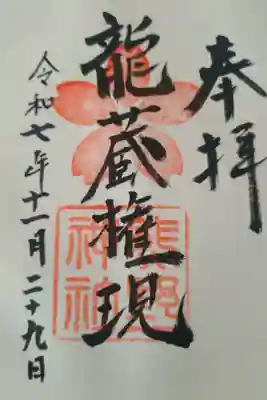 奉拝
龍蔵権現
熊野
神社
令和七年十一月二十九日